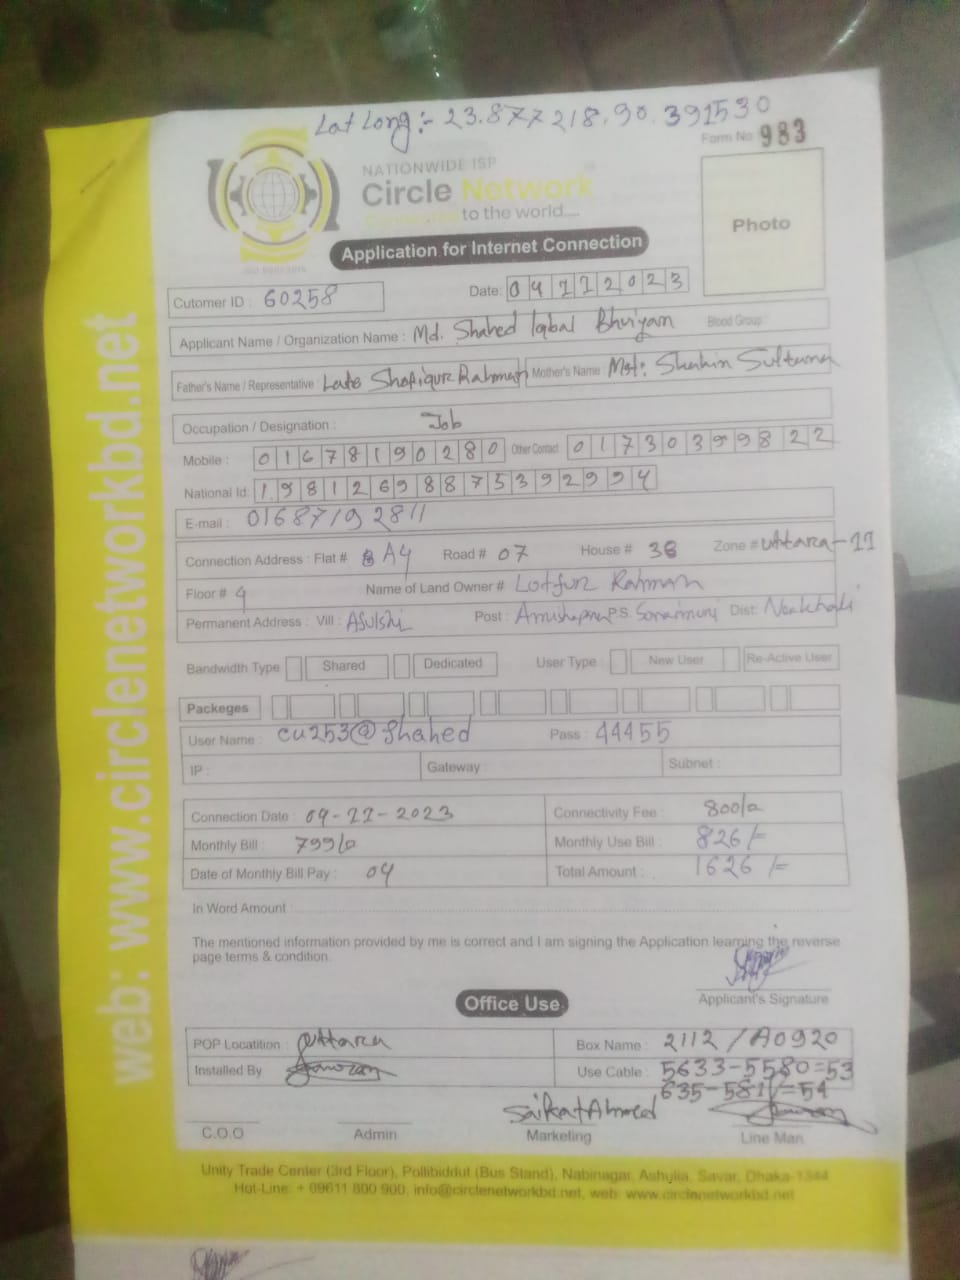 Lat Long:- 23.877218, 90.391530
Form No 983
NATIONWIDE ISP
Circle Network
Connected to the world....
Photo
Application for Internet Connection
Cutomer ID : 60258
Date: 04112023
Applicant Name / Organization Name : Md. Shahed Iqbal Bhuiyan Blood Group :
Father's Name / Representative : Late Shafiqur Rahman Mother's Name : Mst: Shahin Sultana
Occupation / Designation : Job
Mobile : 01678190280 Other Contact 01730399822
National Id: 19812698875392994
E-mail : 01687192811
Connection Address : Flat # A4 Road # 07 House # 38 Zone # Uttara-11
Floor # 4 Name of Land Owner # Lotfur Rahman
Permanent Address : Vill : Post : P.S. Sonaimuri Dist: Noakhali
Bandwidth Type Shared Dedicated User Type : New User Re-Active User
Packeges
User Name : cu253@Shahed Pass : 44455
IP : Gateway : Subnet :
Connection Date : 04-11-2023 Connectivity Fee : 800/=
Monthly Bill : 799/= Monthly Use Bill : 826/-
Date of Monthly Bill Pay : 04 Total Amount : 1626/=
In Word Amount :
The mentioned information provided by me is correct and I am signing the Application learning the reverse
page terms & condition.
Applicant's Signature
Office Use
POP Locatition : Uttara Box Name : 2112/A0920
Installed By Use Cable : 5633-5580=53
635-581/=54
Saikat Ahmed
C.O.O Admin Marketing Line Man
Unity Trade Center (3rd Floor), Pollibiddut (Bus Stand), Nabinagar, Ashylia, Savar, Dhaka-1344
Hot-Line: + 09611 800 900, info@circlenetworkbd.net, web: www.circlenetworkbd.net
web: www.circlenetworkbd.net